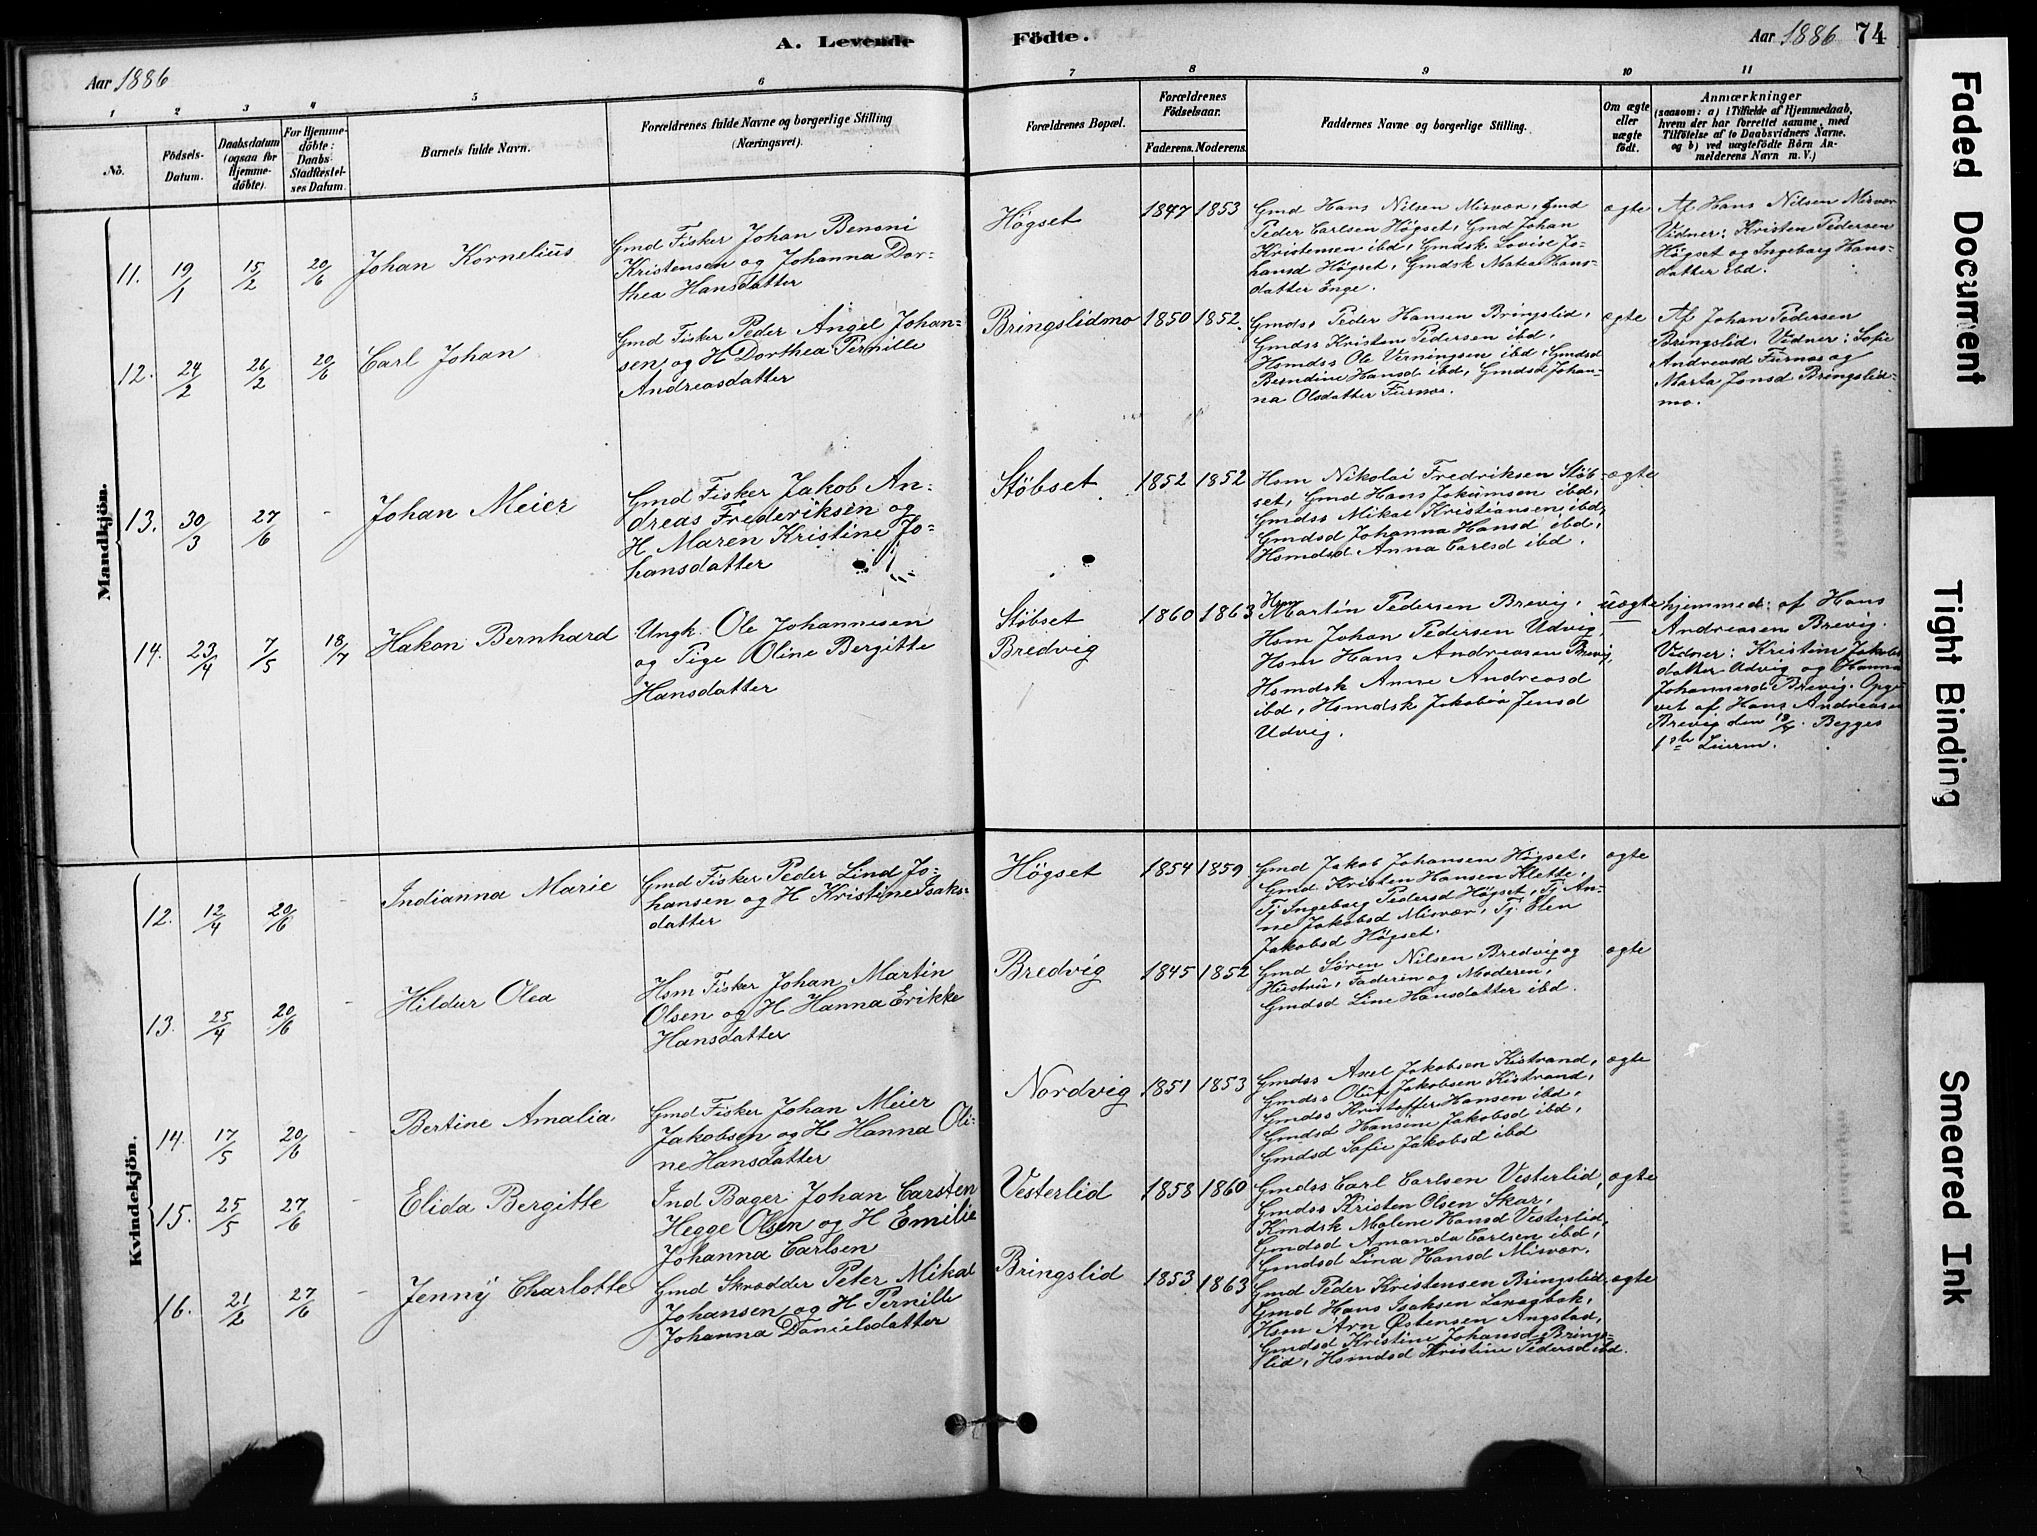 A. Levende Födte.
Aar 1886
Aar 1886 74
1 2 3 4 5 6 7 8 9 10 11
No.
Födsels-Datum.
Daabsdatum (ogsaa for Hjemme-döbte).
For Hjemme-döbte: Daabs-Stadfæstel-ses Datum.
Barnets fulde Navn.
Forældrenes fulde Navne og borgerlige Stilling (Næringsvei).
Forældrenes Bopæl.
Forældrenes Födselsaar.
Faderens. Moderens.
Faddernes Navne og borgerlige Stilling.
Om ægte eller uægte födt.
Anmærkninger
(saasom: a) i Tilfælde af Hjemmedaab, hvem der har forrettet samme, med Tilföielse af to Daabsvidners Navne. og b) ved uægtefödte Börn Anmelderens Navn m. V.)
Mandkjön.
11. 19/1 15/2 20/6 Johan Kornelius
Gmd Fisker Johan Benoni
Kristensen og Johanna Dor-
thea Hansdatter
Högset 1847 1853
Gmd Hans Nilsen Misvær, Gmd
Peder Carlsen Högset, Gmd Johan
Kristensen ibd, Gmdsk Lovise Jo-
hansd Högset, Gmdsk Matea Hans-
datter Enge.
ægte
Af Hans Nilsen Misvær
Vidner: Kristen Pedersen
Högset og Ingeborg Hans-
datter ibd.
12. 24/2 26/2 20/6 Carl Johan
Gmd Fisker Peder Angel Johan-
sen og H Dorthea Pernille
Andreasdatter
Bringslidmo 1850 1852.
Gmdss Peder Hansen Bringslid,
Gmdss Kristen Pedersen ibd,
Hsmdss Ole Verningsen ibd, Gmdsd
Berndine Hansd ibd, Gmdsd Johan-
na Olsdatter Furmo.
ægte
Af Johan Pedersen
Bringslid. Vidner: Sofie
Andreasd Furmo og
Marta Jonsd Bringslid-
mo.
13. 30/3 27/6 - Johan Meier
Gmd Fisker Jakob An-
dreas Frederiksen og
H Maren Kristine Jo-
hansdatter
Støbset 1852 1852
Hsm Nikolai Fredriksen Støb-
set, Gmd Hans Jokumsen ibd,
Gmdss Mikal Kristiansen ibd,
Gmdsd Johanna Hansd ibd,
Hsmdsd Anna Carlsd ibd.
ægte
14. 23/4 7/5 18/7 Hakon Bernhard
Ungk. Ole Johannesen
og Pige Oline Bergitte
Hansdatter
Støbset
Bredvig
1860 1863
Hsm Martin Pedersen Brevig,
Hsm Johan Pedersen Udvig,
Hsm Hans Andreasen Brevig,
Hsmdsk Anne Andreasd
ibd, Hsmdsk Jakobia Jensd
Udvig.
uægte
hjemmed: af Hans
Andreasen Brevig.
Vidner: Kristine Jakobs
datter Udvig og Hanna
Johannesd Brevig. Opgi-
vet af Hans Andreasen
Brevig den 18/7. Begges
1ste Leierm.
Kvindekjön.
12. 12/4 20/6 Indianna Marie
Gmd Fisker Peder Lind Jo-
hansen og H Kristine Isaks-
datter
Högset 1854 1859
Gmd Jakob Johansen Högset,
Gmd Kristen Hansen Klette,
Tj Ingeborg Pedersd Högset, Tj An-
ne Jakobsd Misvær, Tj. Elen
Jakobsd Högset.
ægte
13. 25/4 20/6 - Hildur Olea
Hsm Fisker Johan Martin
Olsen og H Hanna Erikke
Hansdatter
Bredvig 1845 1852
Gmd Sören Nilsen Bredvig og
Hustru, Faderen og Moderen,
Gmdsd Line Hansdatter ibd.
ægte
14. 17/5 20/6 - Bertine Amalia
Gmd Fisker Johan Meier
Jakobsen og H Hanna Oli-
ne Hansdatter
Nordvig 1851 1853
Gmdss Axel Jakobsen Kistrand,
Gmdss Oluf Jakobsen Kistrand,
Gmdss Kristoffer Hansen ibd,
Gmdsd Hansine Jakobsd ibd,
Gmdsd Sofie Jakobsd ibd
ægte
15. 25/5 27/6 - Elida Bergitte
Ind Bager Johan Carsten
Hegge Olsen og H Emilie
Johanna Carlsen
Vesterlid 1858 1860
Gmdss Carl Carlsen Vesterlid,
Gmdss Kristen Olsen Skar,
Kmdsk Malene Hansd Vesterlid,
Gmdsd Amanda Carlsen ibd,
Gmdsd Lina Hansd Misvær.
ægte
16. 21/2 27/6 - Jenny Charlotte
Gmd Skrædder Peter Mikal
Johansen og H Pernille
Johanna Danielsdatter
Bringslid 1853 1863
Gmd Peder Kristensen Bringslid,
Gmd Hans Isaksen
Hsm Arn Østensen Angstad,
Gmdsd Kristine Johansd Brings-
lid, Hsmdsd Kristine Pedersd ibd.
ægte
Faded Document
Tight Binding
Smeared Ink